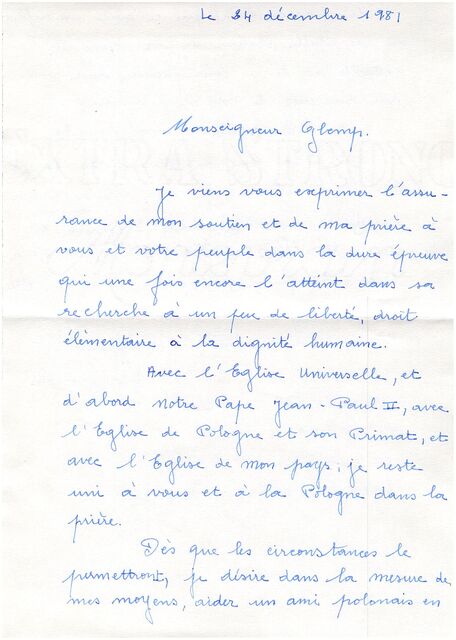 Le 24 décembre 1981
Monseigneur Glemp.
Je viens vous exprimer l'assu-
rance de mon soutien et de ma prière à
vous et votre peuple dans la dure épreuve
qui une fois encore l'atteint dans sa
recherche à un peu de liberté, droit
élémentaire à la dignité humaine.
Avec l'Eglise Universelle, et
d'abord notre Pape Jean-Paul II, avec
l'Eglise de Pologne et son Primat, et
avec l'Eglise de mon pays; je reste
uni à vous et à la Pologne dans la
prière.
Dès que les circonstances le
permettront, je désire dans la mesure de
mes moyens, aider un ami polonais en